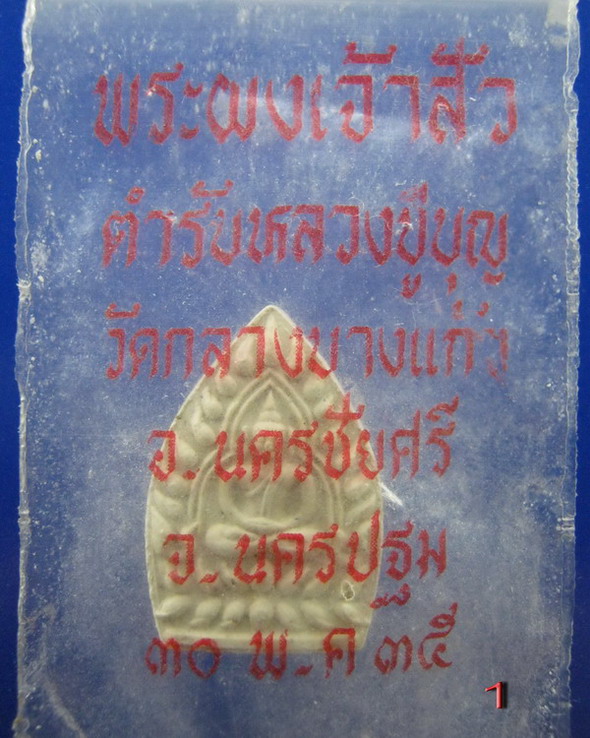 พระผงเจ้าสัว
ตำรับหลวงปู่บุญ
วัดกลางบางแก้ว
อ.นครชัยศรี
จ.นครปฐม
๓๐ พ.ค ๓๕
1